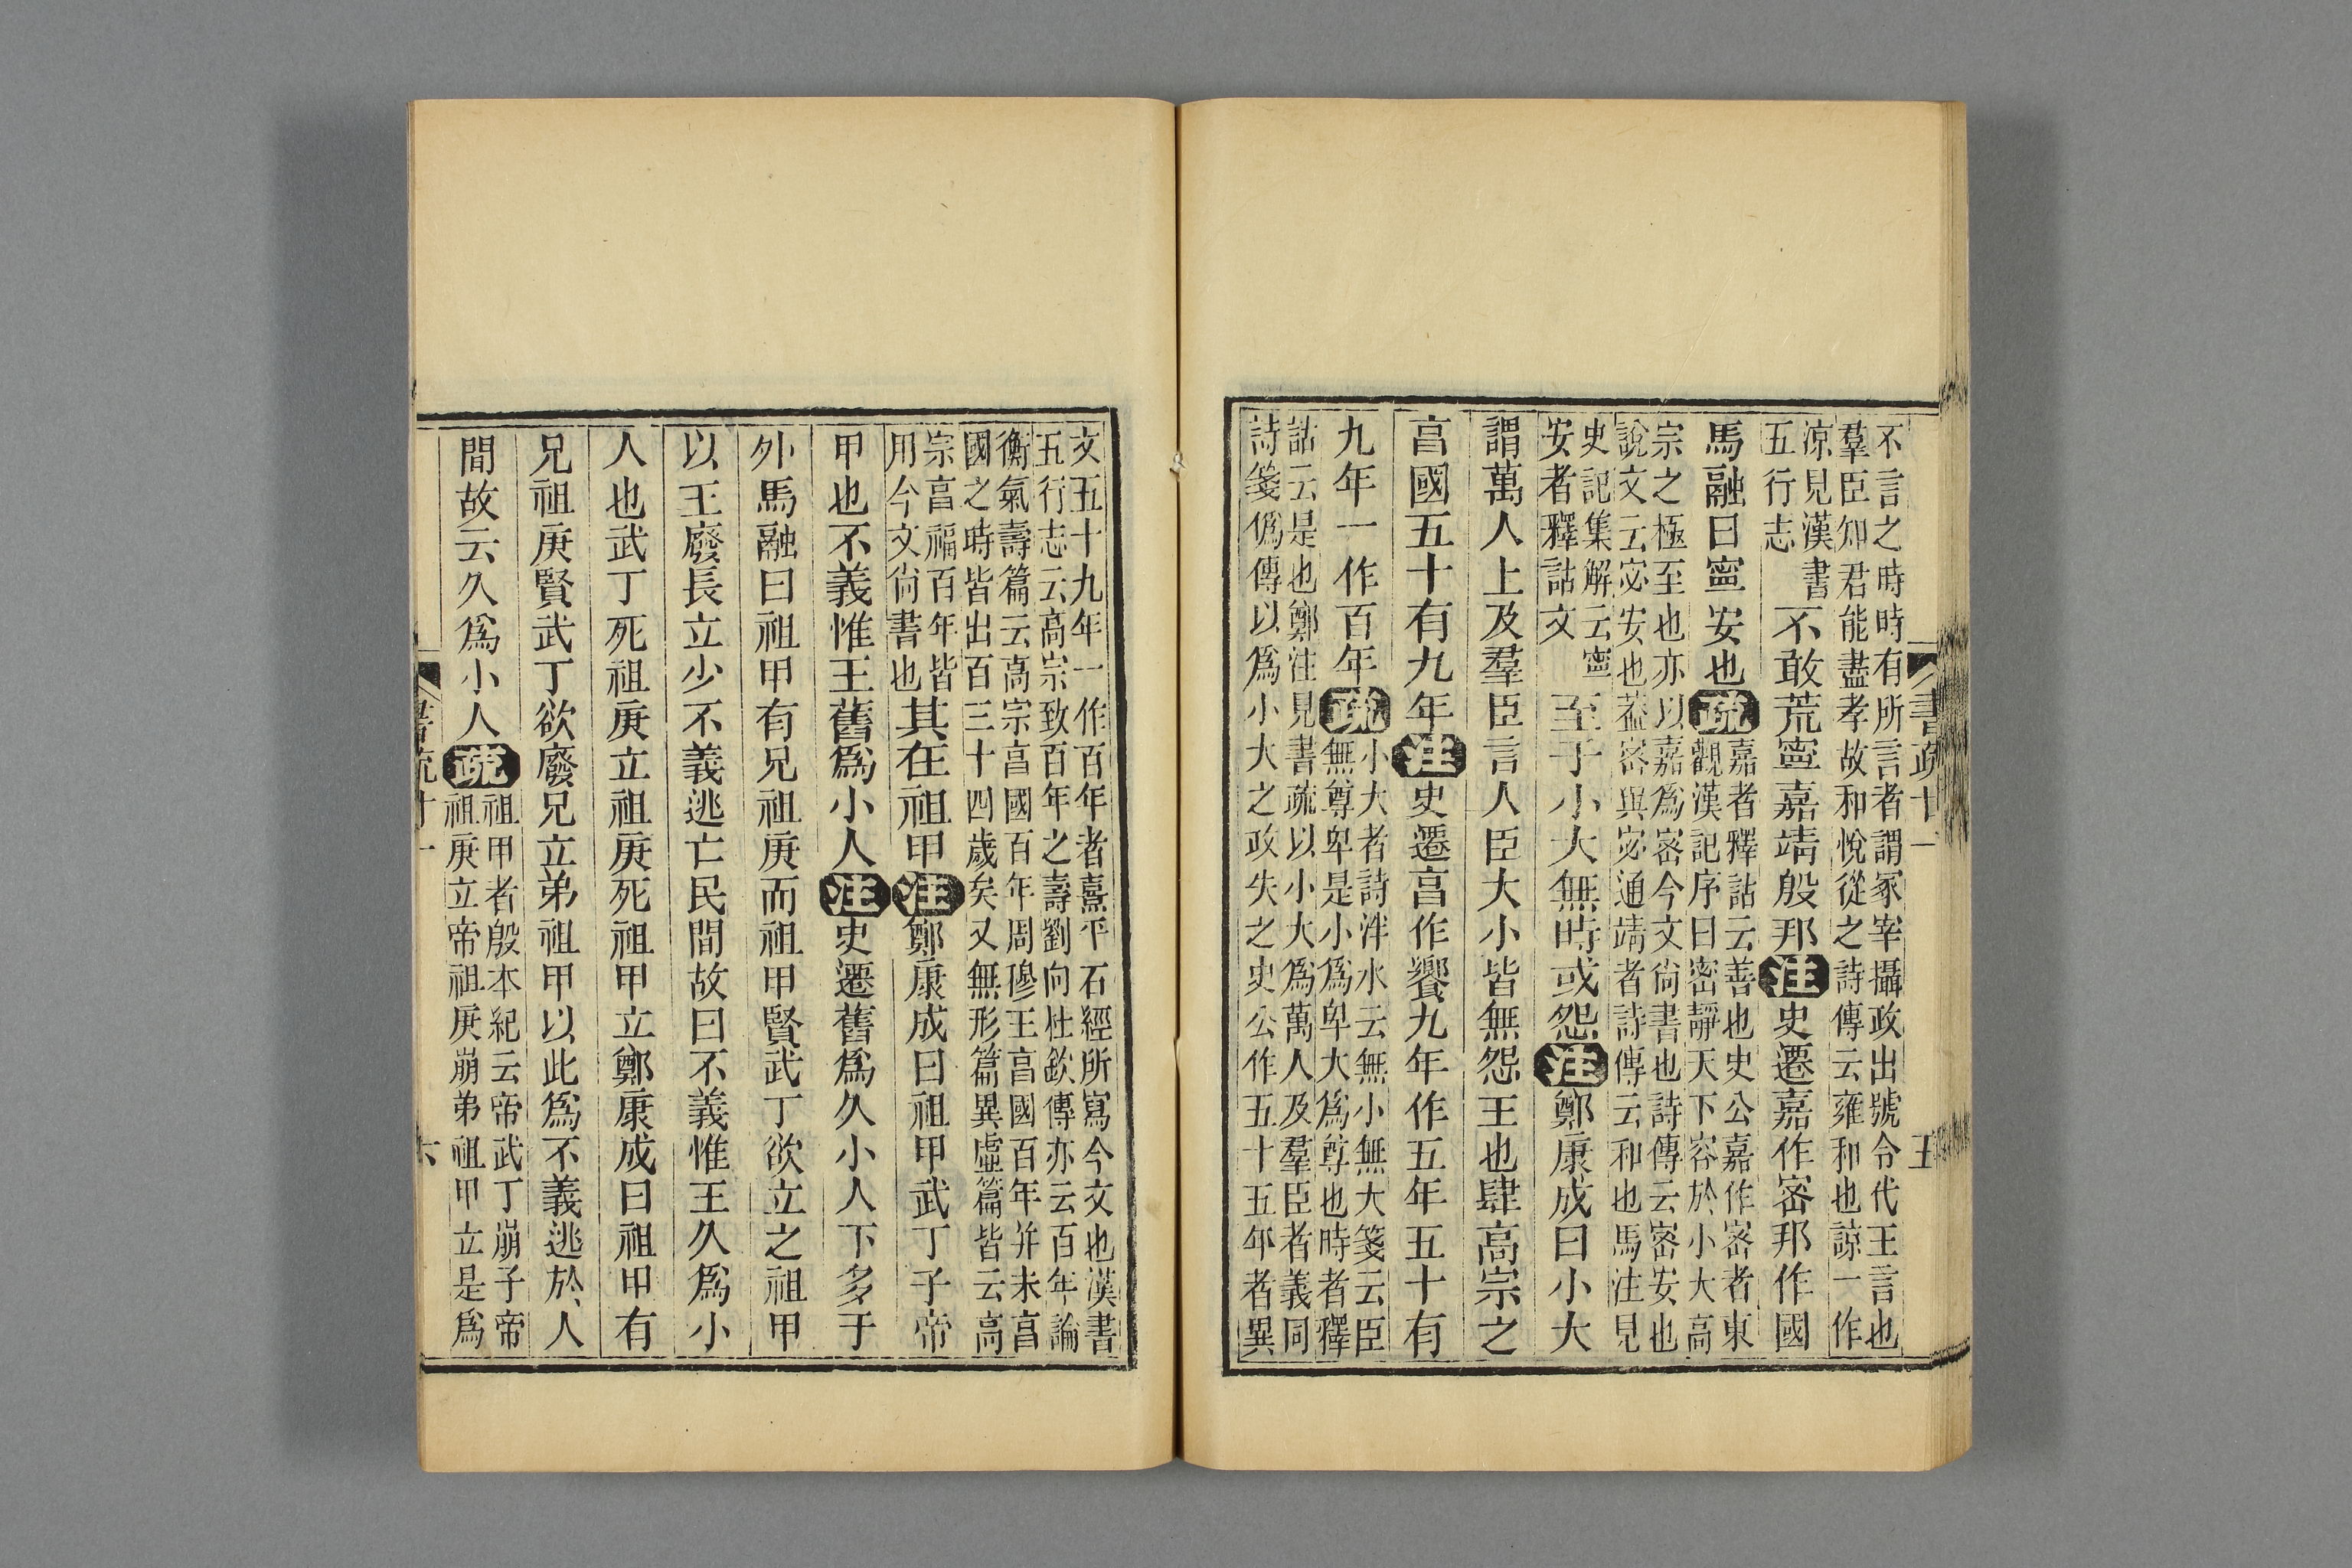 書疏十一
五
不言之時時有所言者謂冢宰攝政出號令代王言也
羣臣知君能盡孝故和悅從之詩傳云雍和也諒一作
涼見漢書
五行志
不敢荒寧嘉靖殷邦注史遷嘉作密邦作國
馬融曰寍安也疏
嘉者釋詁云善也史公嘉作密者東
觀漢記序曰密靜天下容於小大高
宗之極至也亦以嘉爲密今文尚書也詩傳云密安也
說文云宓安也葢密與宓通靖者詩傳云和也馬注見
史記集解云寍
安者釋詁文
至于小大無時或怨注鄭康成曰小大
謂萬人上及羣臣言人臣大小皆無怨王也肆高宗之
亯國五十有九年注史遷亯作饗九年作五年五十有
九年一作百年疏
小大者詩泮水云無小無大箋云臣
無尊卑是小爲卑大爲尊也時者釋
詁云是也鄭注見書疏以小大爲萬人及羣臣者義同
詩箋僞傳以爲小大之政失之史公作五十五年者異
文五十九年一作百年者熹平石經所寫今文也漢書
五行志云高宗致百年之壽劉向杜欽傳亦云百年論
衡氣壽篇云高宗亯國百年周穆王亯國百年并未亯
國之時皆出百三十四歲矣又無形篇異虛篇皆云高
宗亯福百年皆
用今文尚書也
其在祖甲注鄭康成曰祖甲武丁子帝
甲也不義惟王舊爲小人注史遷舊爲久小人下多于
外馬融曰祖甲有兄祖庚而祖甲賢武丁欲立之祖甲
以王廢長立少不義逃亡民間故曰不義惟王久爲小
人也武丁死祖庚立祖庚死祖甲立鄭康成曰祖甲有
兄祖庚賢武丁欲廢兄立弟祖甲以此爲不義逃於人
間故云久爲小人疏
祖甲者殷本紀云帝武丁崩子帝
祖庚立帝祖庚崩弟祖甲立是爲
書疏十一
六